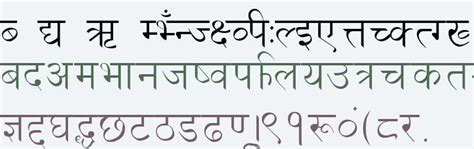 ब द्य ऋ म्भँन्ज्क्ष्व्पीःल्इएत्तच्क्त्ग्ख्
बदअमभानजष्वपलियउत्रचकत
ज्ञद्दघद्धछटठडढणु।९१रू०ं(८र.